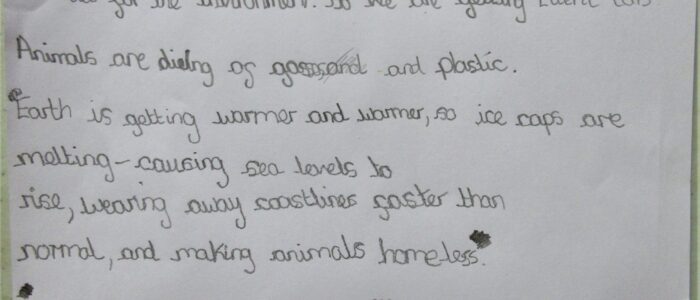 for the environment. So we are getting
Animals are dieing of and plastic.
Earth is getting warmer and warmer, so ice caps are
melting - causing sea levels to
rise, wearing away coastlines faster than
normal, and making animals homeless.